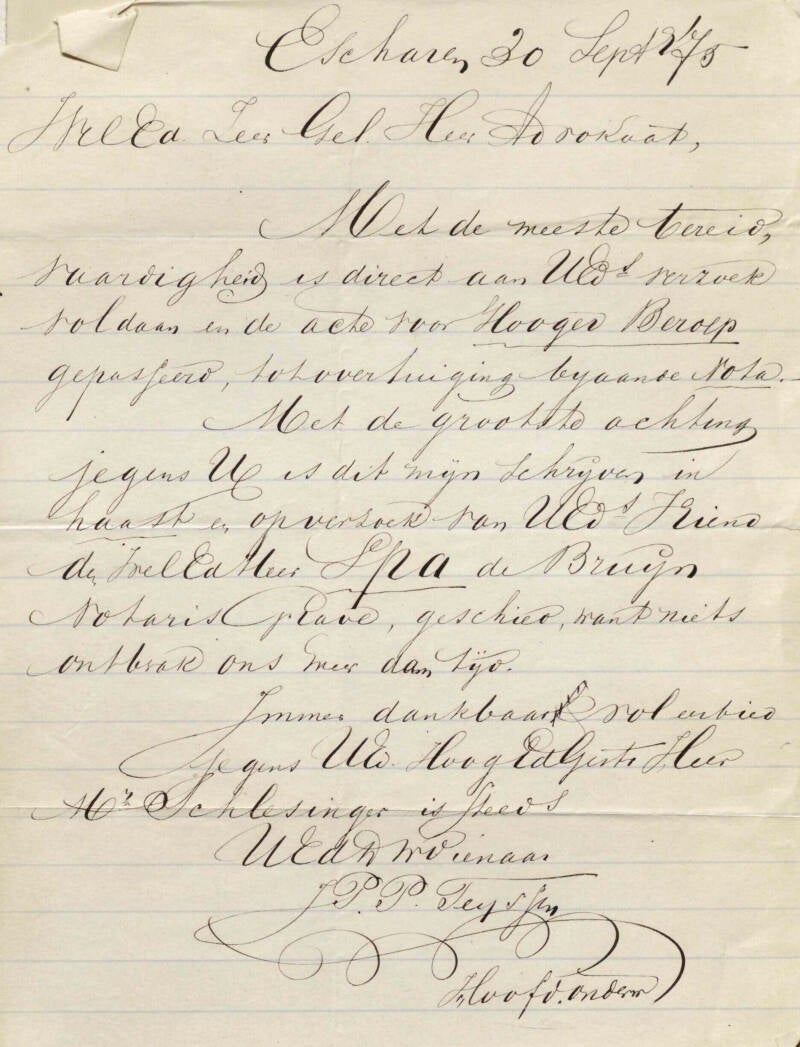 Escharen 30 Sept 1875
WelEd. Zeer Gel. Heer Advokaat,
Met de meeste bereid,
vaardigheid is direct aan UEds verzoek
voldaan en de acte voor Hooger Beroep
gepasseerd, tot overtuiging bygaande Nota.
Met de grootste achting
jegens U is dit mijn schryven in
haast en op verzoek van UEds Vriend
den WelEdHeer de Bruyn
Notaris Grave, geschied, want niets
ontbrak ons meer dan tijd.
Immer dankbaar & vol eerbied
jegens UEd. HoogEdGestr Heer
Mr Schlesinger is steeds
UEdDWDienaar
J.P.P. Teyssen
Hoofd.onderw